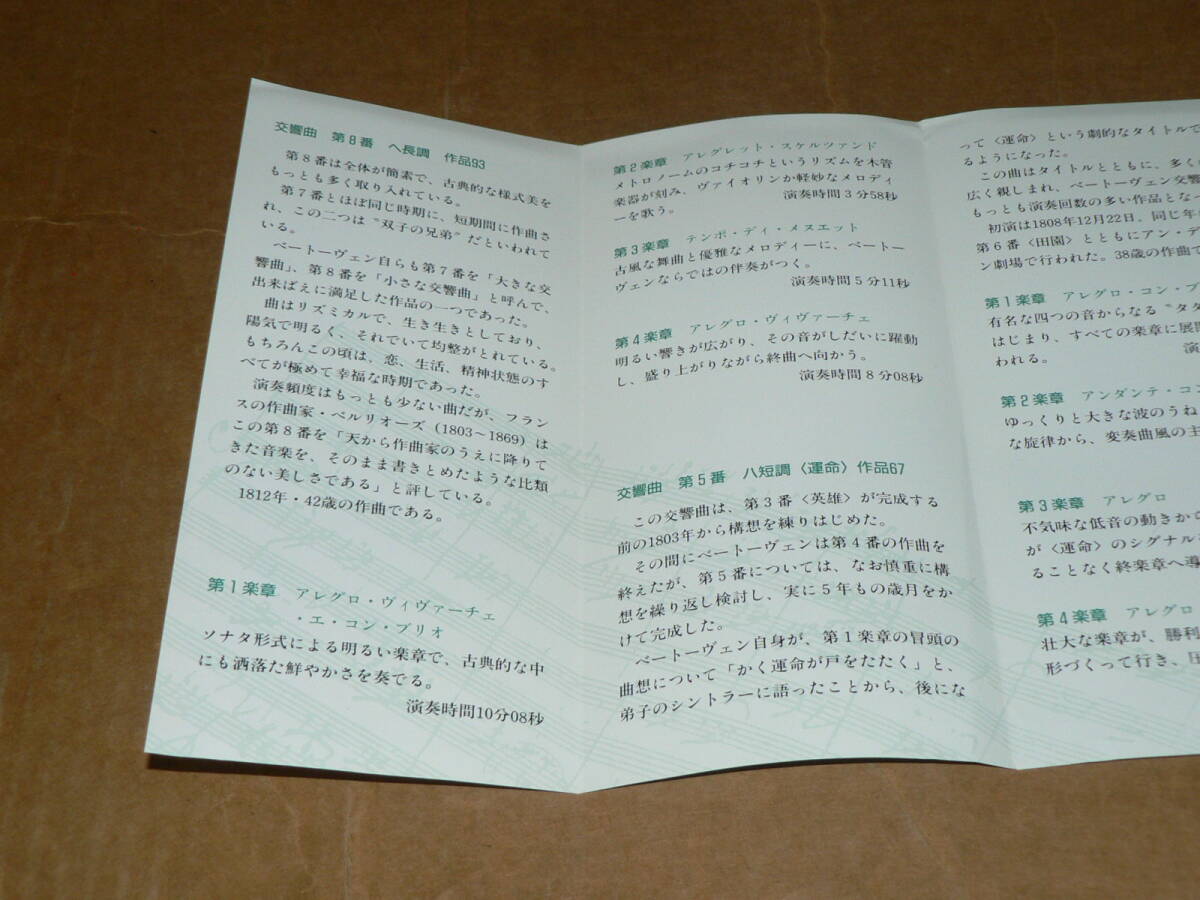 交響曲　第8番　ヘ長調　作品93
第8番は全体が簡素で、古典的な様式美を
もっとも多く取り入れている。
第7番とほぼ同じ時期に、短期間に作曲さ
れ、この二つは〝双子の兄弟〟だといわれて
いる。
ベートーヴェン自らも第7番を「大きな交
響曲」、第8番を「小さな交響曲」と呼んで、
出来ばえに満足した作品の一つであった。
曲はリズミカルで、生き生きとしており、
陽気で明るく、それでいて均整がとれている。
もちろんこの頃は、恋、生活、精神状態のす
べてが極めて幸福な時期であった。
演奏頻度はもっとも少ない曲だが、フラン
スの作曲家・ベルリオーズ（1803〜1869）は
この第8番を「天から作曲家のうえに降りて
きた音楽を、そのまま書きとめたような比類
のない美しさである」と評している。
1812年・42歳の作曲である。
第1楽章　アレグロ・ヴィヴァーチェ
・エ・コン・ブリオ
ソナタ形式による明るい楽章で、古典的な中
にも洒落た鮮やかさを奏でる。
演奏時間10分08秒
第2楽章　アレグレット・スケルツァンド
メトロノームのコチコチというリズムを木管
楽器が刻み、ヴァイオリンか軽妙なメロディ
ーを歌う。
演奏時間3分58秒
第3楽章　テンポ・ディ・メヌエット
古風な舞曲と優雅なメロディーに、ベートー
ヴェンならではの伴奏がつく。
演奏時間5分11秒
第4楽章　アレグロ・ヴィヴァーチェ
明るい響きが広がり、その音がしだいに躍動
し、盛り上がりながら終曲へ向かう。
演奏時間8分08秒
交響曲　第5番　ハ短調〈運命〉作品67
この交響曲は、第3番〈英雄〉が完成する
前の1803年から構想を練りはじめた。
その間にベートーヴェンは第4番の作曲を
終えたが、第5番については、なお慎重に構
想を繰り返し検討し、実に5年もの歳月をか
けて完成した。
ベートーヴェン自身が、第1楽章の冒頭の
曲想について「かく運命が戸をたたく」と、
弟子のシントラーに語ったことから、後にな
って〈運命〉という劇的なタイトルで
るようになった。
この曲はタイトルとともに、多く
広く親しまれ、ベートーヴェン交響
もっとも演奏回数の多い作品とな
初演は1808年12月22日、同じ年
第6番〈田園〉とともにアン・デ
ン劇場で行われた。38歳の作曲で
第1楽章　アレグロ・コン・ブ
有名な四つの音からなる〝タタ
はじまり、すべての楽章に展開
われる。
演
第2楽章　アンダンテ・コン
ゆっくりと大きな波のうね
な旋律から、変奏曲風の主
第3楽章　アレグロ
不気味な低音の動きかで
が〈運命〉のシグナル
ることなく終楽章へ導
第4楽章　アレグロ
壮大な楽章が、勝利
形づくって行き、